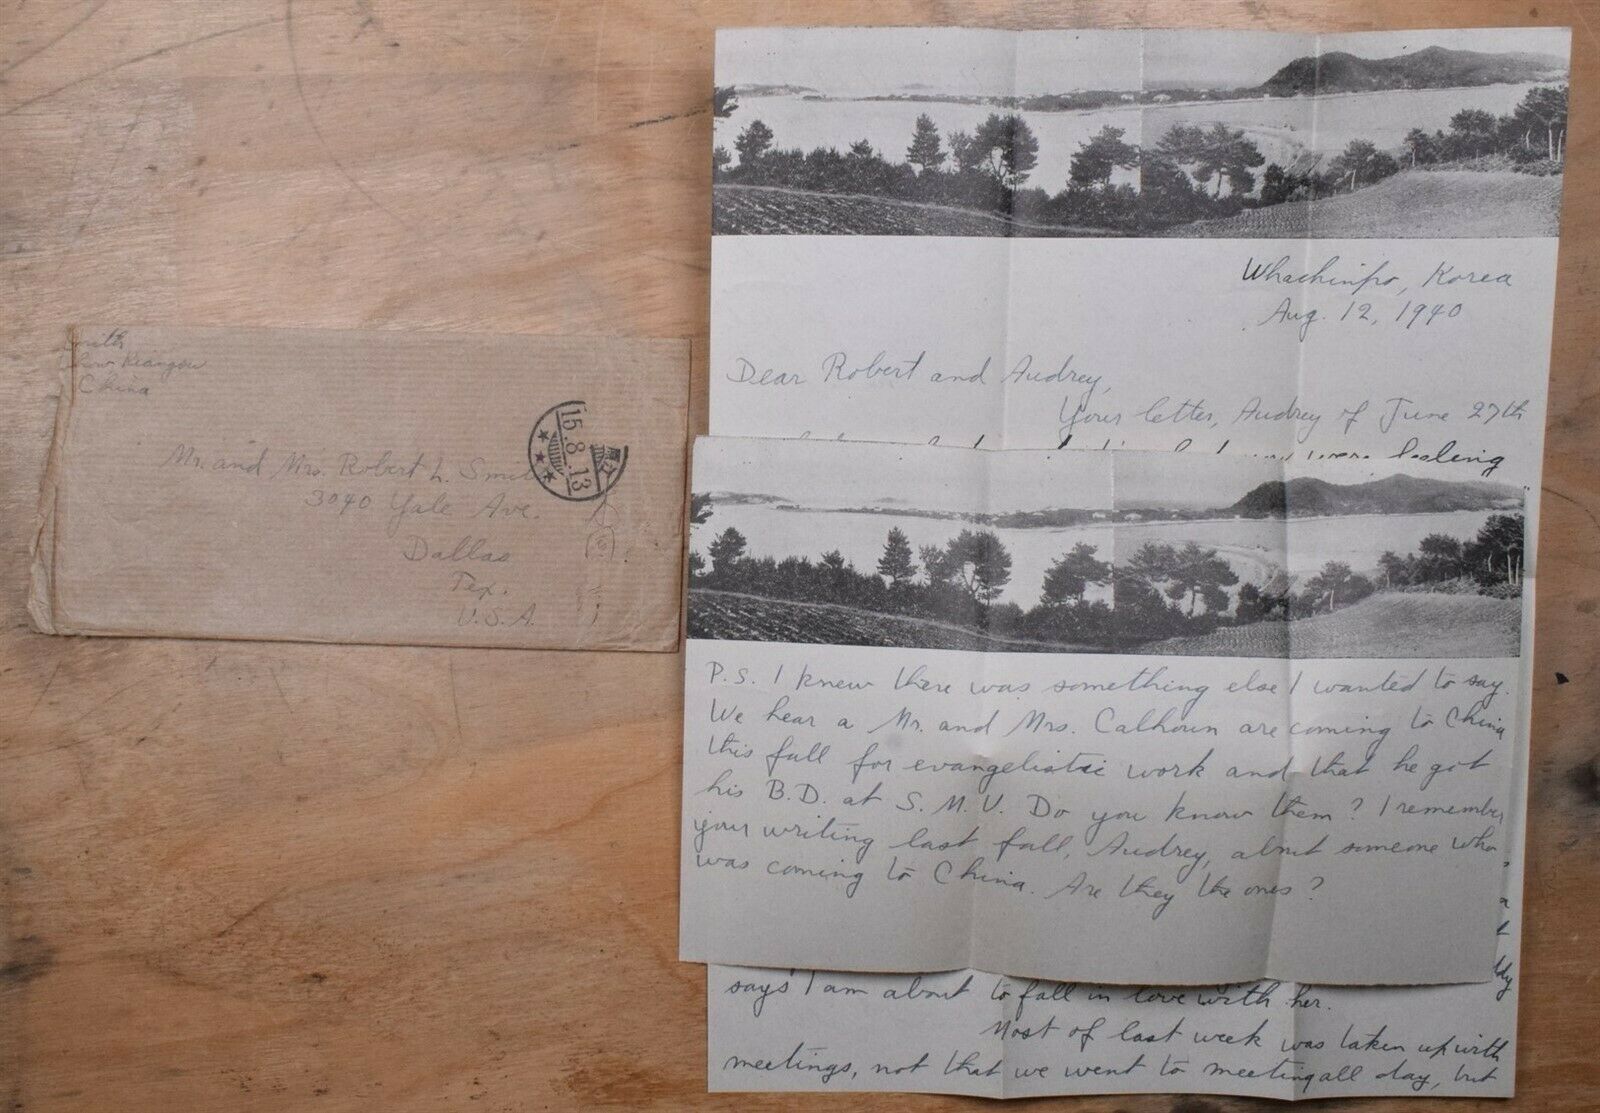 Smith
Kiangsu
China
Mr. and Mrs. Robert L. Smith
3040 Yale Ave.
Dallas
Tex.
U.S.A.
15.8.13
Whachinpo, Korea
Aug. 12, 1940
Dear Robert and Audrey,
Your letter, Audrey of June 27th
were feeling
P.S. I knew there was something else I wanted to say.
We hear a Mr. and Mrs. Calhoun are coming to China
this fall for evangelistic work and that he got
his B.D. at S.M.U. Do you know them? I remember
your writing last fall, Audrey, about someone who
was coming to China. Are they the ones?
says I am about to fall in love with her.
Most of last week was taken up with
meetings, not that we went to meeting all day, but